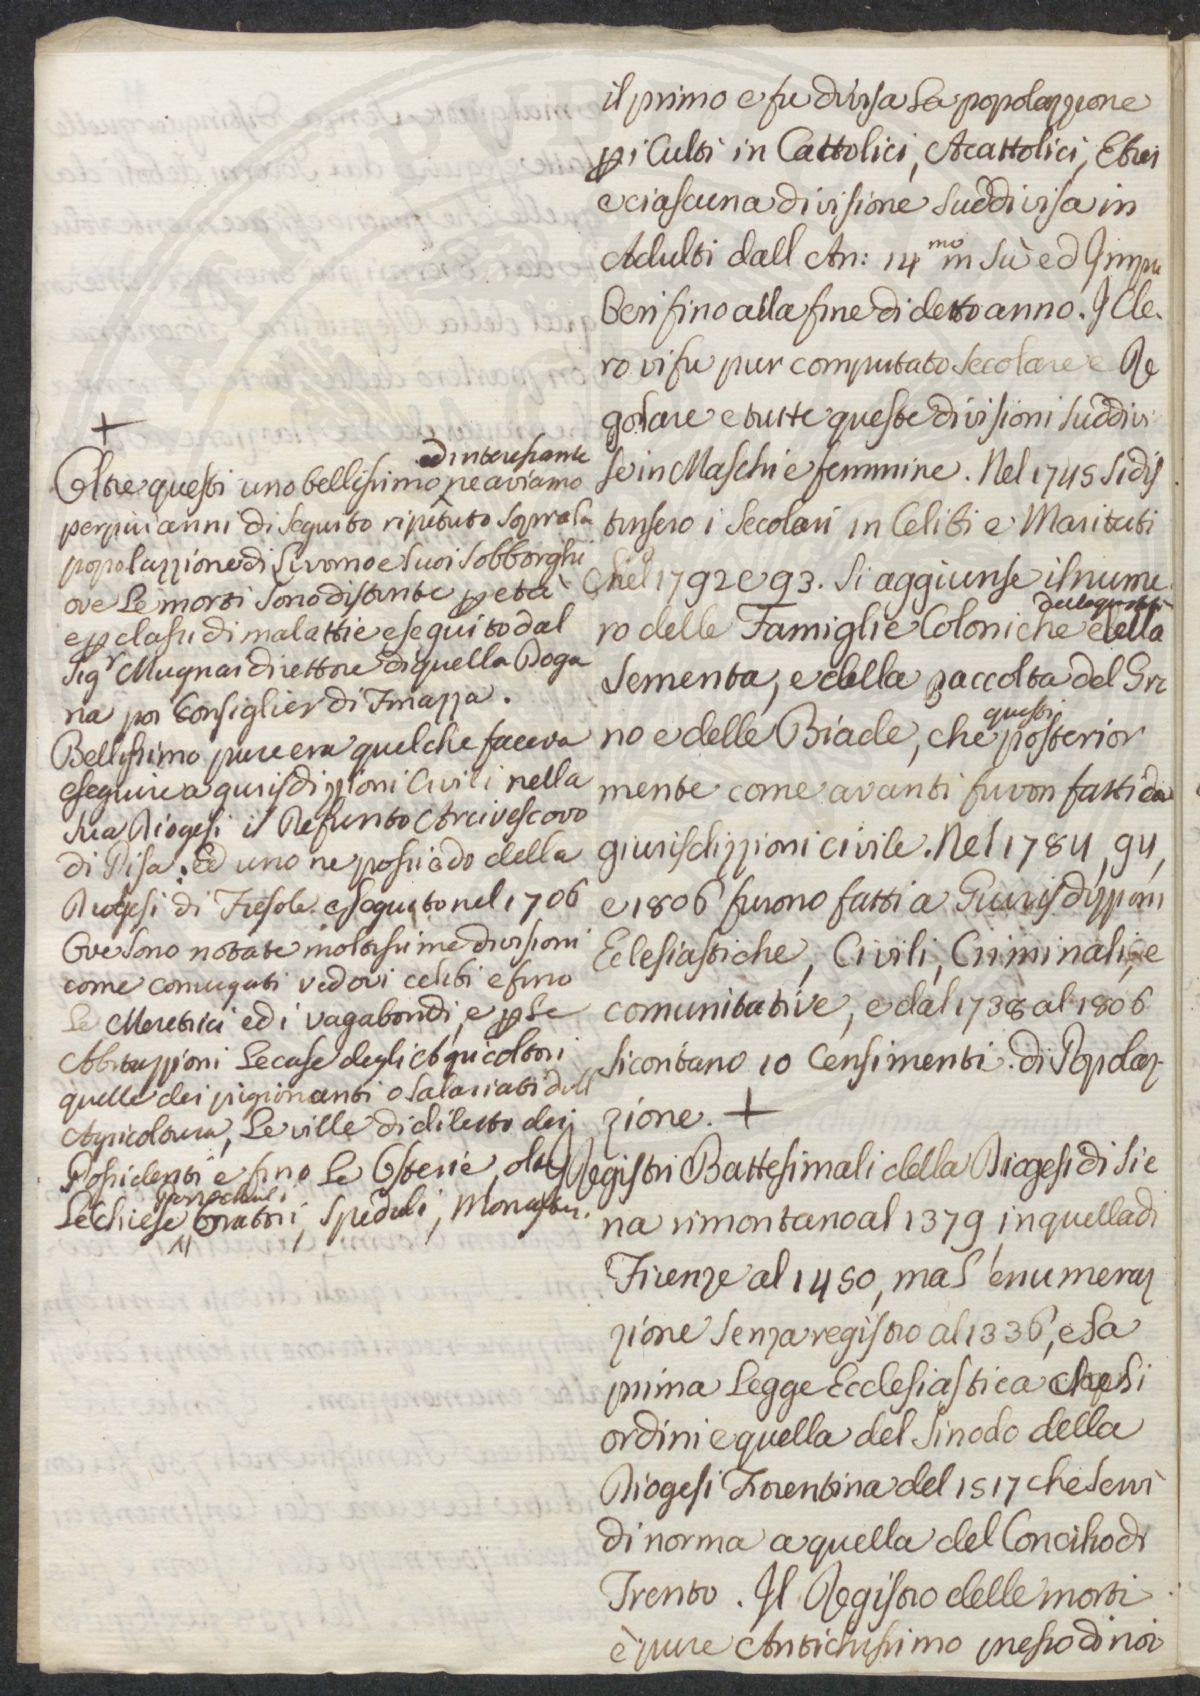 il primo e fu divisa la popolazzione
p i Culti in Cattolici, Acattolici, Ebrei
e ciascuna divisione suddivisa in
Adulti dall An: 14mo in sù ed Impu
beri fino alla fine di detto anno. Il Cle.
ro vi fu pur computato secolare e Re
golare e tutte queste divisioni suddivi
se in Maschi e femmine. Nel 1745 si dis
tinsero i secolari in Celibi e Maritati
Nel 1792 e 93. si aggiunse il nume
ro delle Famiglie Coloniche della
sementa, e della raccolta del Gra
no e delle Biade, che questi posterior
mente come avanti furon fatti da
giurisdizzioni civile. Nel 1784, 94,
e 1806 furono fatti a Giurisdizzioni
Eclesiastiche, Civili, Criminali, e
comunitative, e dal 1738 al 1806
si contano 10 Censimenti di Popolaz-
zione. +
I Registri Battesimali della Diogesi di Sie
na rimontano al 1379 in quella di
Firenze al 1450, ma l'enumeraz
zione senza registro al 1336, e la
prima Legge Ecclesiastica che li
ordini e quella del Sinodo della
Diogesi Fiorentina del 1517 che servì
di norma a quella del Concilio di
Trento. Il Registro delle morti
è pure Antichissimo presso di noi
+
Oltre questi uno bellissimo ed interessante ne aviamo
per più anni di seguito ripetuto sopra la
popolazzione di Livorno e suoi Sobborghi
ove le morti sono distinte p età
e p classi di malattie eseguito dal
Sigr Mugnai direttore di quella Doga
na poi Consiglier di Finazza.
Bellissimo pure era quel che faceva
eseguire a giurisdizzioni Civili nella
sua Diogesi il Defunto Arcivescovo
di Pisa. Ed uno ne possiedo della
Diogesi di Fiesole eseguito nel 1706
Ove sono notate moltissime divisioni
come coniugati vedovi celibi e fino
le Meretrici ed i vagabondi, e p le
Abitazzioni le case degli Agricoltori
quelle dei pigionanti o salariati dell
Agricoltura, le ville di diletto dei
Possidenti e fino le Osterie, oltre
le chiese parrochiali Oratori, Spedali, Monasteri.